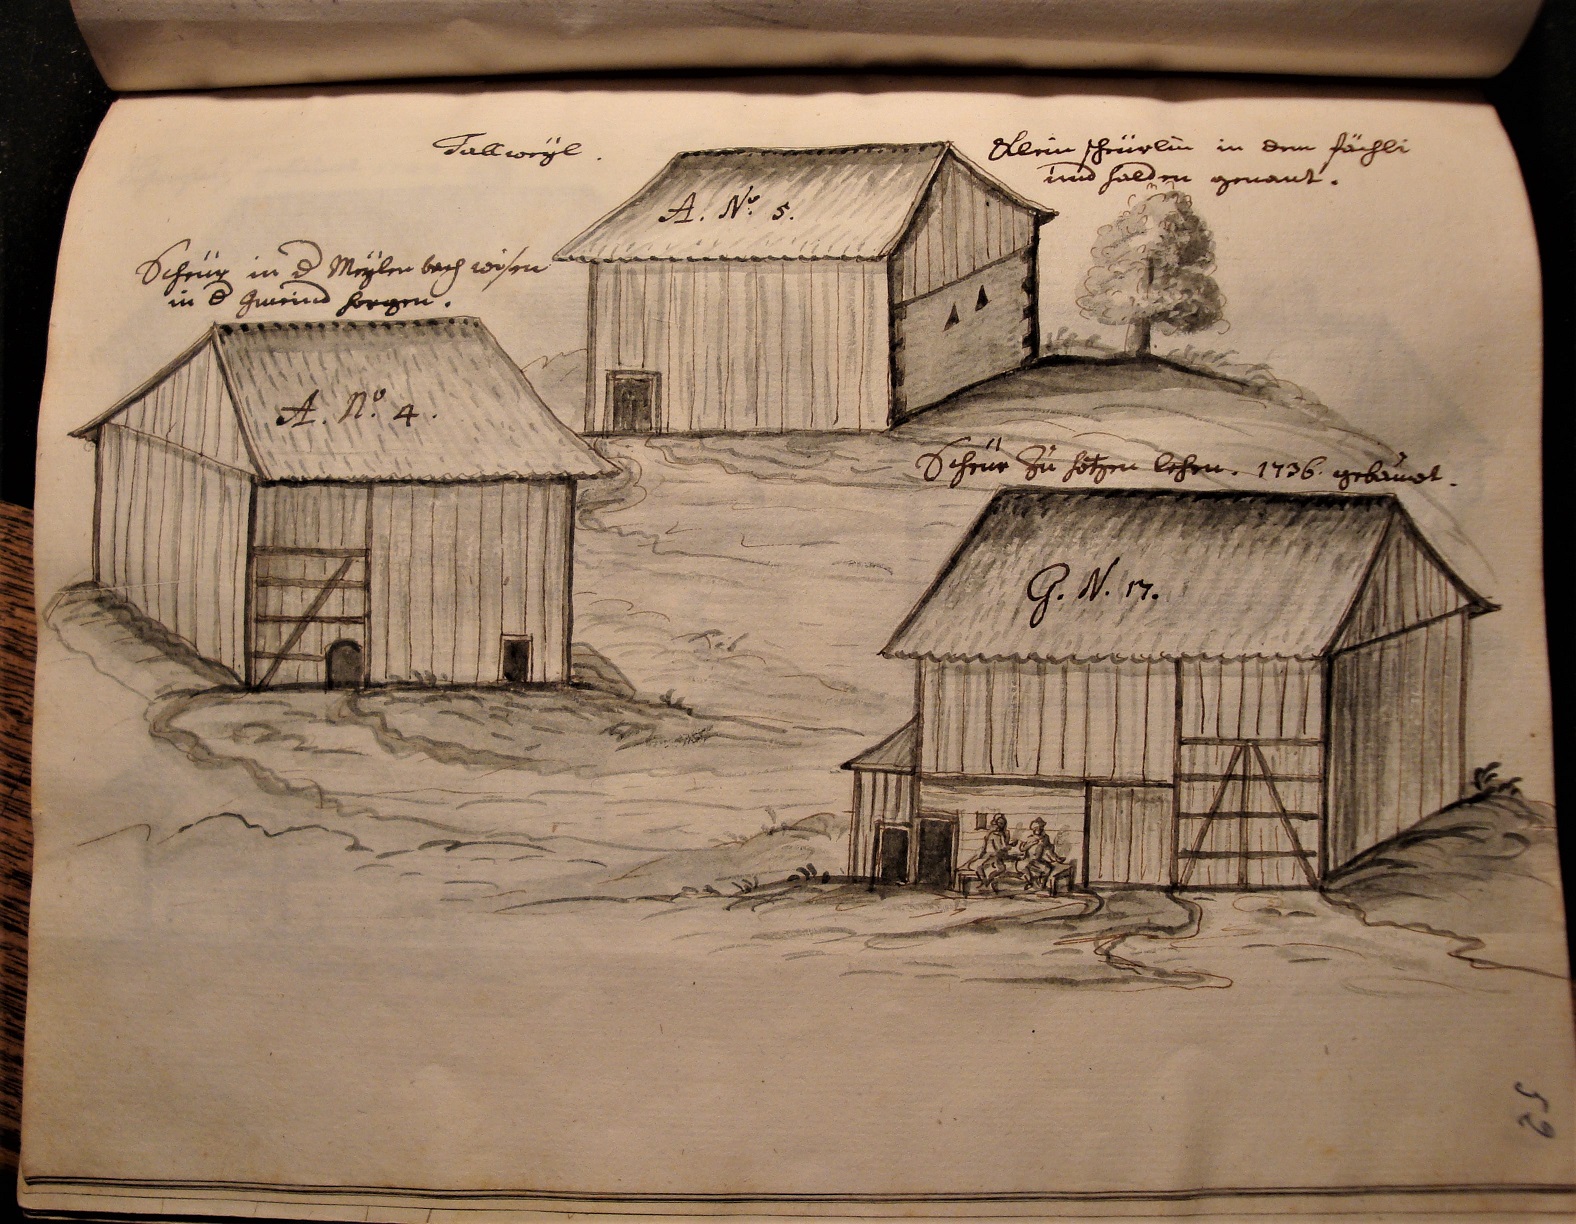 Tallweÿl.
Klein scheürlin in dem fächli
und halden genant.
A. No. 5.
Scheür in d Meÿlen bach wisen
in d Gmeind horgen.
A. No. 4.
Scheür zu hötzen lehen. 1736. gebauwt.
G. N. 17.
52